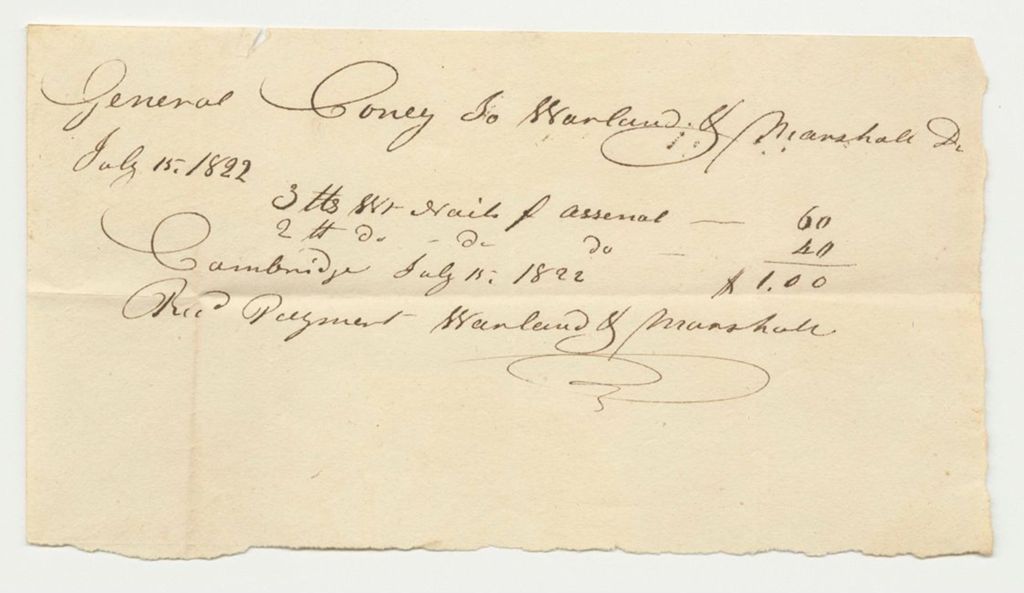 General Coney To Warland & Marshall Dr
July 15. 1822
3 ℔s Wt Nails f assenal — 60
2 ℔ do - do do — 40
Cambridge July 15. 1822 $ 1.00
Recd Payment Warland & Marshall